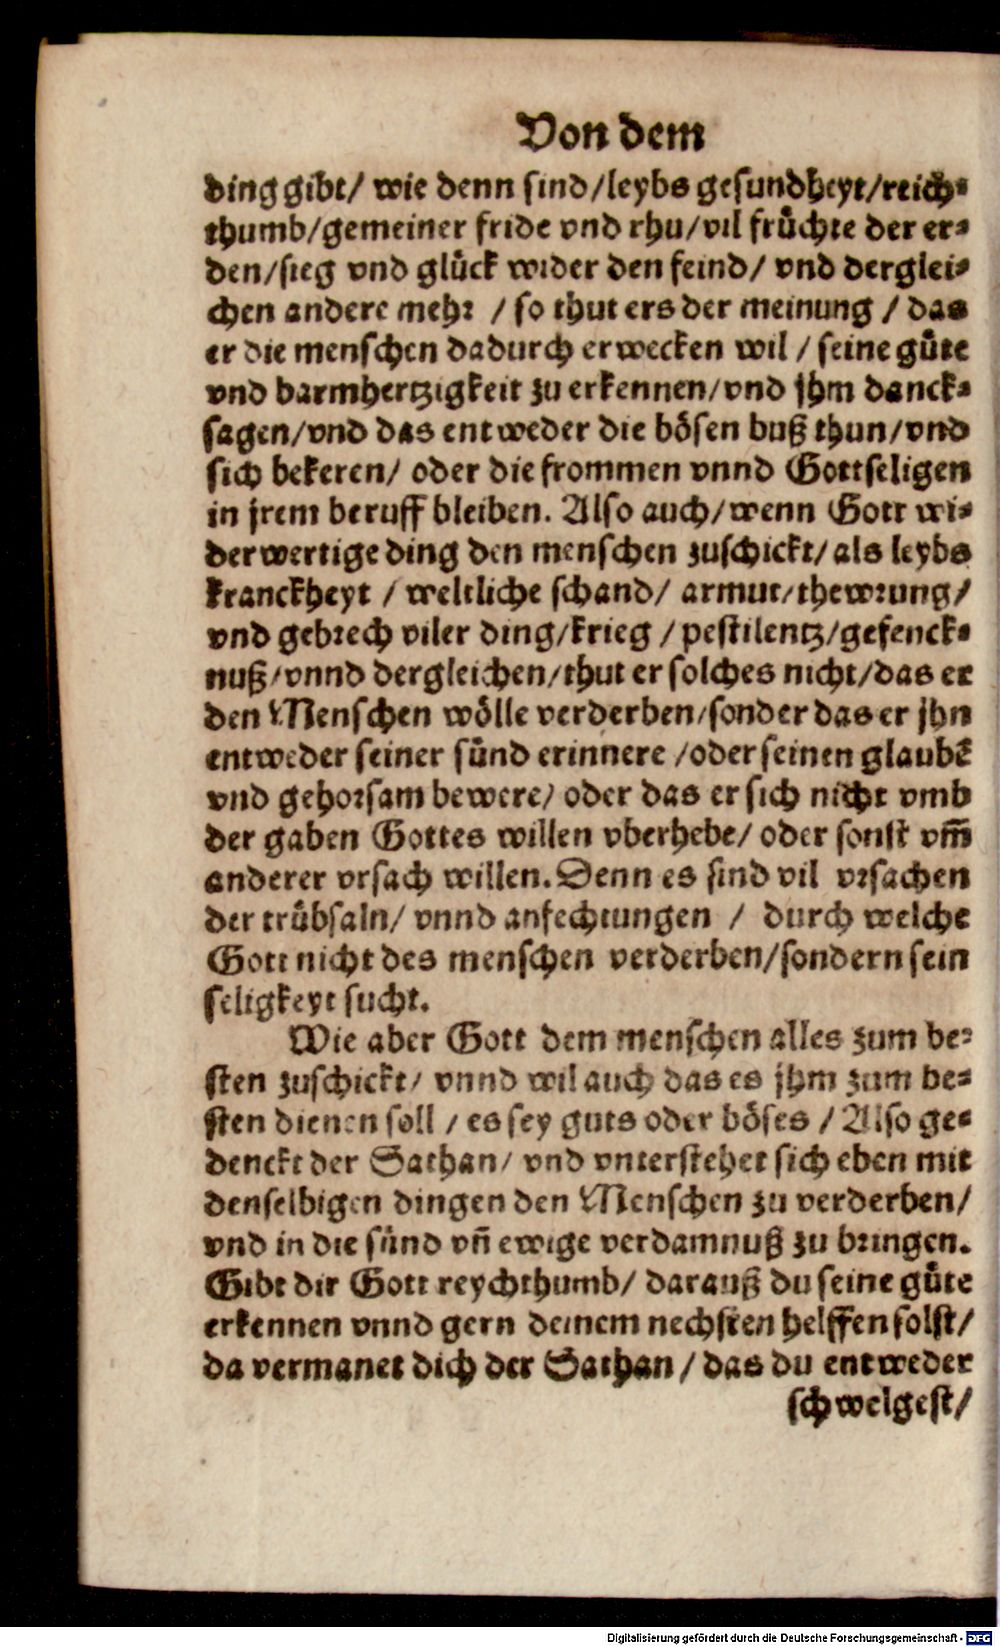 Von dem
ding gibt/ wie denn sind/leybs gesundheyt/reich⸗
thumb/gemeiner fride vnd rhu/vil fruͤchte der er⸗
den/sieg vnd gluͤck wider den feind/ vnd derglei⸗
chen andere mehr / so thut ers der meinung / das
er die menschen dadurch erwecken wil / seine guͤte
vnd barmhertzigkeit zu erkennen/vnd jhm danck⸗
sagen/vnd das entweder die boͤsen buß thun/vnd
sich bekeren/ oder die frommen vnnd Gottseligen
in jrem beruff bleiben. Also auch/wenn Gott wi⸗
derwertige ding den menschen zuschickt/als leybs
kranckheyt / weltliche schand/ armut/thewrung/
vnd gebrech viler ding/krieg / pestilentz/gefenck⸗
nuß/vnnd dergleichen/thut er solches nicht/das er
den Menschen woͤlle verderben/sonder das er jhn
entweder seiner suͤnd erinnere /oder seinen glaubē
vnd gehorsam bewere/ oder das er sich nicht vmb
der gaben Gottes willen vberhebe/ oder sonst vm̃
anderer vrsach willen. Denn es sind vil vrsachen
der truͤbsaln/ vnnd anfechtungen / durch welche
Gott nicht des menschen verderben/sondern sein
seligkeyt sucht.
Wie aber Gott dem menschen alles zum be⸗
sten zuschickt/ vnnd wil auch das es jhm zum be⸗
sten dienen soll / es sey guts oder boͤses / Also ge⸗
denckt der Sathan/ vnd vnterstehet sich eben mit
denselbigen dingen den Menschen zu verderben/
vnd in die suͤnd vñ ewige verdamnuß zu bringen.
Gibt dir Gott reychthumb/ darauß du seine guͤte
erkennen vnnd gern deinem nechsten helffen solst/
da vermanet dich der Sathan / das du entweder
schwelgest/
Digitalisierung gefördert durch die Deutsche Forschungsgemeinschaft - DFG